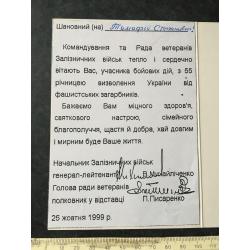 Шановний (на)
Командування та Рада ветеранів
Залізничних військ тепло і сердечно
вітають Вас, учасника бойових дій, з 55
річницею визволення України від
фашистських загарбників.
Бажаємо Вам міцного здоров'я,
святкового настрою, сімейного
благополуччя, щастя й добра, хай довгим
і мирним буде Ваше життя.
Начальник Залізничних військ
генерал-лейтенант М.Михайліченко
Голова ради ветеранів
полковник у відставці П.Писаренко
25 жовтня 1999 р.